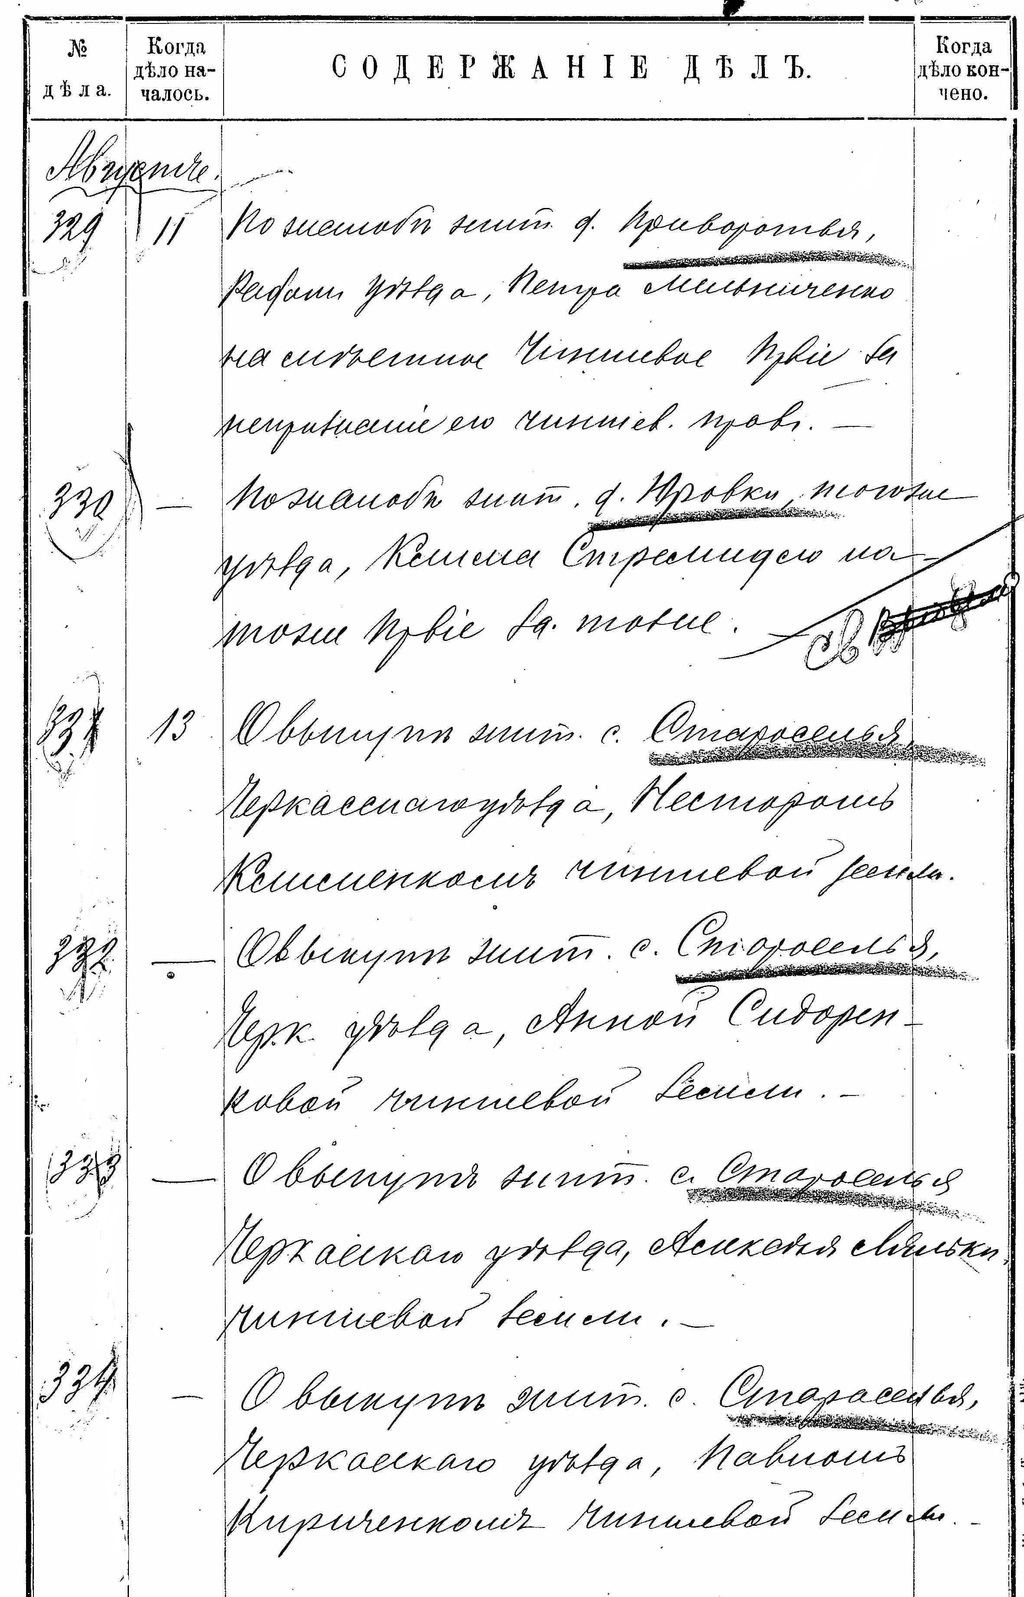 № дѣла.
Когда дѣло началось.
СОДЕРЖАНІЕ ДѢЛЪ.
Когда дѣло кончено.
Августъ.
329 11 По жалобѣ жит. д. Приворотья,
Радом. уѣзда, Петра Мельниченко
на съѣстное чиншевое Пр-віе за
непризнаніе его чиншев. правъ. —
330 — По жалобѣ жит. д. Юровки, того же
уѣзда, Клима на
тоже Пр-віе за тоже.
331 13 О выкупѣ жит. с. Староселья,
Черкасскаго уѣзда, Несторомъ
Клименкомъ чиншевой земли.
332 — О выкупѣ жит. с. Староселья,
Черк. уѣзда, Анной Сидорен-
ковой чиншевой земли. —
333 — О выкупѣ жит. с. Староселья
Черкасскаго уѣзда,
чиншевой земли. —
334 — О выкупѣ жит. с. Староселья,
Черкасскаго уѣзда, Павломъ
Кириченкомъ чиншевой земли. —